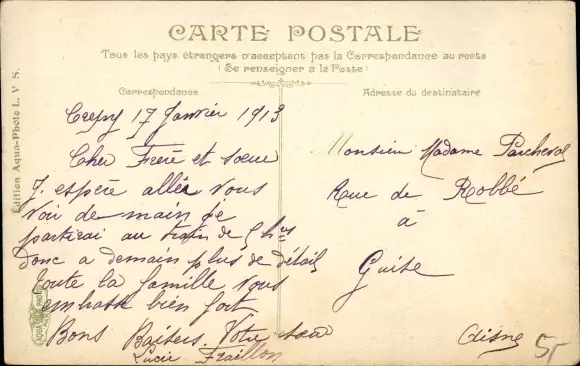 CARTE POSTALE
Tous les pays étrangers n'acceptent pas la Correspondance au recto
(Se renseigner à la Poste)
Correspondance
Adresse du destinataire
Crepy 17 Janvier 1913
Cher Frère et sœur
J. espère allér vous
voir de main je
partirai au train de 5 hrs
donc a demain plus de détail
toute la famille vous
embrasse bien fort
Bons Baisers. Votre sœur
Lucie Fraillon
Monsieur Madame
Rue de Robbé
à
Guise
Aisne
Edition Aqua-Photo L. V. S.
AQUA PHOTO